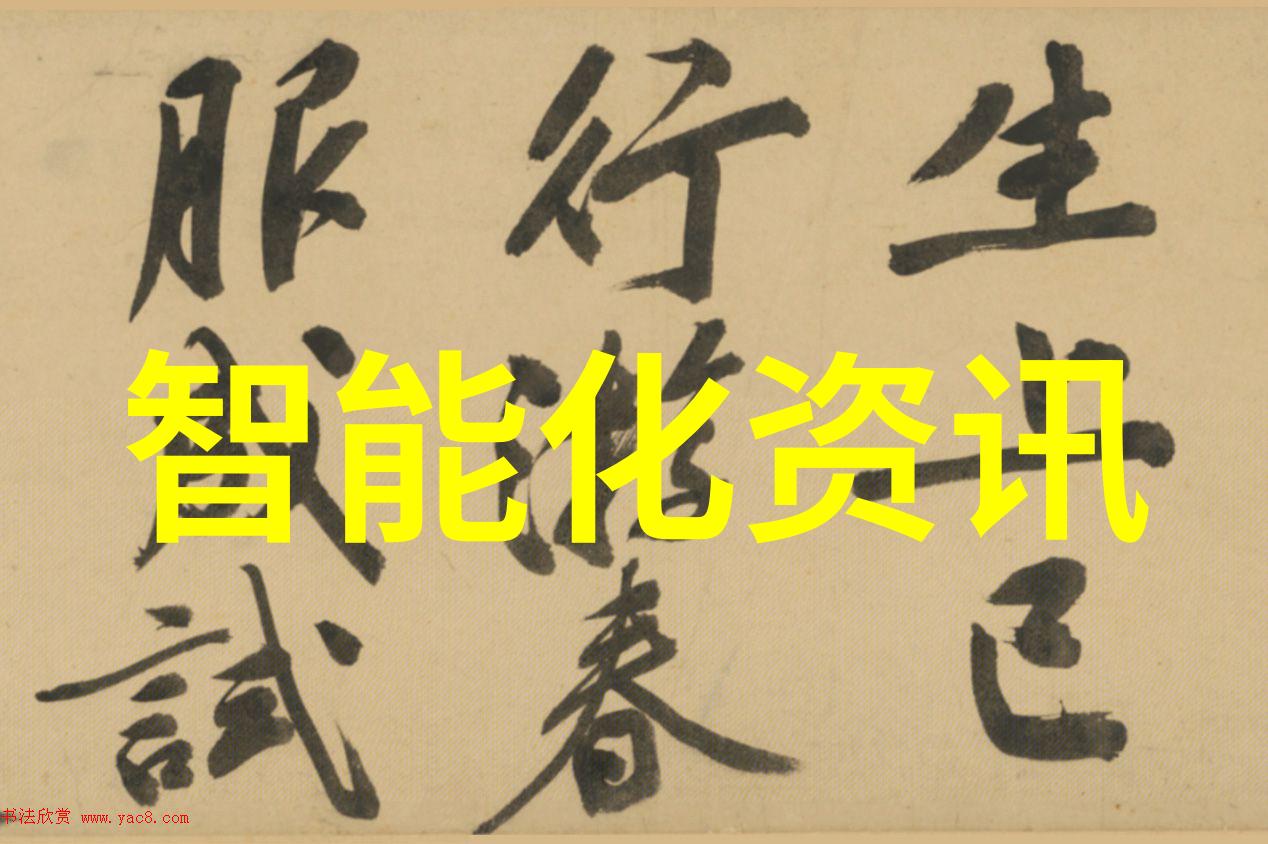 生上巳
行游春
服成試
智能化资讯
书法欣赏 www.yac8.com